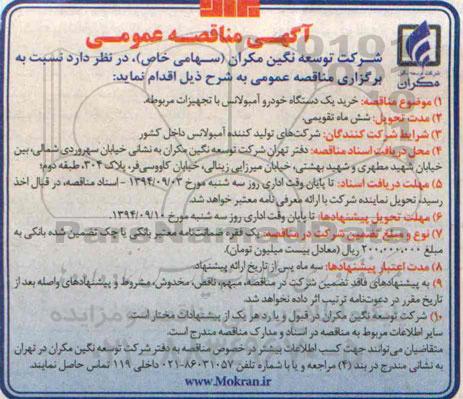 آگهی مناقصه عمومی
شرکت توسعه نگین مکران
مکران
شرکت توسعه نگین مکران (سهامی خاص)، در نظر دارد نسبت به
برگزاری مناقصه عمومی به شرح ذیل اقدام نماید:
۱) موضوع مناقصه: خرید یک دستگاه خودرو آمبولانس با تجهیزات مربوطه.
۲) مدت تحویل: شش ماه تقویمی.
۳) شرایط شرکت کنندگان: شرکت‌های تولید کننده آمبولانس داخل کشور
۴) محل دریافت اسناد مناقصه: دفتر تهران شرکت توسعه نگین مکران به نشانی خیابان سهروردی شمالی، بین
خیابان شهید مطهری و شهید بهشتی، خیابان میرزایی زینالی، خیابان کاووسی‌فر، پلاک ۳۰۴، طبقه دوم؛
۵) مهلت دریافت اسناد: تا پایان وقت اداری روز سه شنبه مورخ ۱۳۹۴/۰۹/۰۳ - اسناد مناقصه، در قبال اخذ
رسید، تحویل نماینده شرکت با ارائه معرفی نامه معتبر خواهد شد.
۶) مهلت تحویل پیشنهادها: تا پایان وقت اداری روز سه شنبه مورخ ۱۳۹۴/۰۹/۱۰.
۷) نوع و مبلغ تضمین شرکت در مناقصه: یک فقره ضمانت‌نامه معتبر بانکی یا چک تضمین شده بانکی به
مبلغ ۲۰۰,۰۰۰,۰۰۰ ریال (معادل بیست میلیون تومان).
۸) مدت اعتبار پیشنهادها: سه ماه پس از تاریخ ارائه پیشنهاد.
۹) به پیشنهادهای فاقد تضمین شرکت در مناقصه، مبهم، ناقص، مخدوش، مشروط و پیشنهادهای واصله بعد از
تاریخ مقرر در دعوت‌نامه ترتیب اثر داده نخواهد شد.
۱۰) شرکت توسعه نگین مکران در قبول و یا رد هر یک از پیشنهادات مختار است
سایر اطلاعات مربوط به مناقصه در اسناد و مدارک مناقصه مندرج است.
متقاضیان می‌توانند جهت کسب اطلاعات بیشتر در خصوص مناقصه به دفتر شرکت توسعه نگین مکران در تهران
به نشانی مندرج در بند (۴) مراجعه و یا با شماره تلفن ۸۶۰۳۱۰۵۷-۰۲۱ داخلی ۱۱۹ تماس حاصل نمایند.
www.Mokran.ir